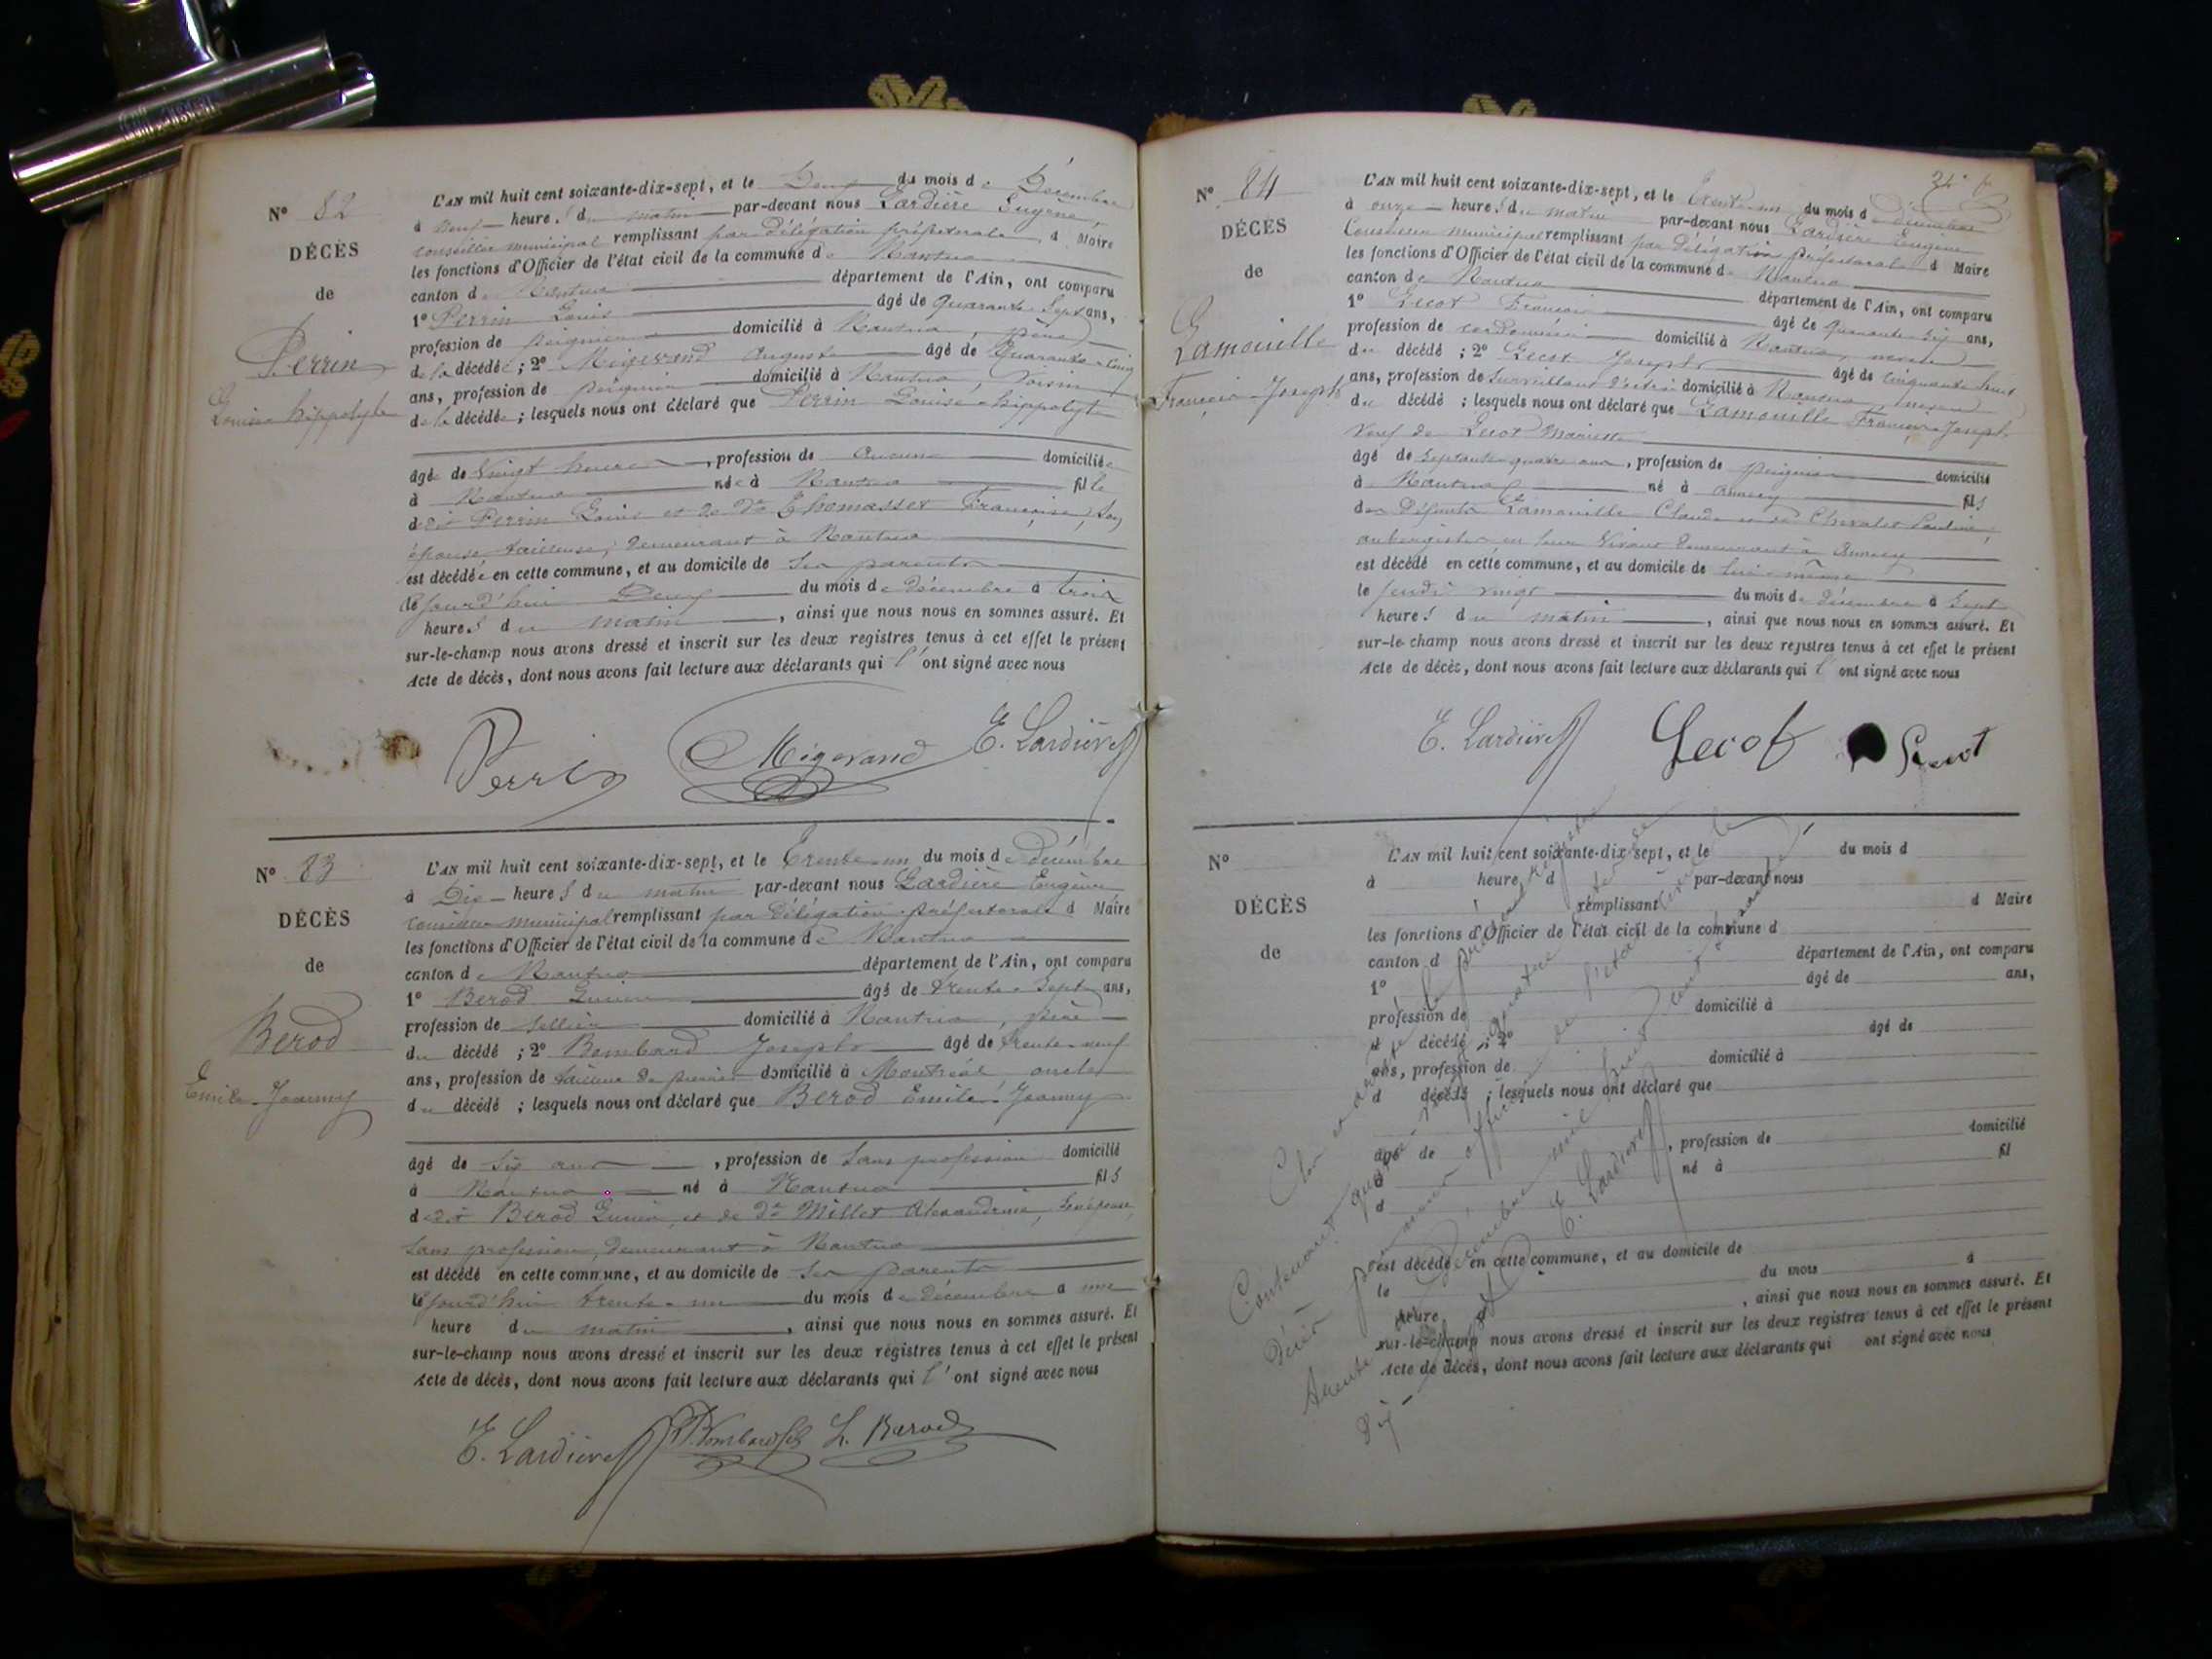 N° 82
DÉCÈS
de
Perrin
Louise hippolyte
L'AN mil huit cent soixante-dix-sept, et le Deux du mois de Décembre
à Neuf heures du matin par-devant nous Lardière Eugène,
conseiller municipal remplissant par délégation préfectorale d Maire
les fonctions d'Officier de l'état civil de la commune de Nantua
canton de Nantua département de l'Ain, ont comparu
1° Perrin Louis âgé de quarante-Sept ans,
profession de peignier domicilié à Nantua, père
de la décédée ; 2° Migerand Auguste âgé de Quarante-cinq
ans, profession de peignier domicilié à Nantua, voisin
de la décédée ; lesquels nous ont déclaré que Perrin Louise-hippolyte
âgée de Vingt heures, profession de Aucune domiciliée
à Nantua née à Nantua fille
de Sr Perrin Louis et de De Thomasset Françoise, Son
épouse tailleuse, demeurant à Nantua
est décédée en cette commune, et au domicile de Ses parents
le jourd'hui Deux du mois de décembre à trois
heures du matin, ainsi que nous nous en sommes assuré. Et
sur-le-champ nous avons dressé et inscrit sur les deux registres tenus à cet effet le présent
Acte de décès, dont nous avons fait lecture aux déclarants qui l'ont signé avec nous
Perrin Migerand E. Lardière
N° 83
DÉCÈS
de
Berod
Emile-Joanny
L'AN mil huit cent soixante-dix-sept, et le Trente-un du mois de décembre
à Dix heures du matin par-devant nous Lardière Eugène
conseiller municipal remplissant par délégation préfectorale d Maire
les fonctions d'Officier de l'état civil de la commune de Nantua
canton de Nantua département de l'Ain, ont comparu
1° Berod Lucien âgé de trente-Sept ans,
profession de Sellier domicilié à Nantua, père
du décédé ; 2° Bombard Joseph âgé de trente-neuf
ans, profession de tailleur de pierres domicilié à Montréal oncle
du décédé ; lesquels nous ont déclaré que Berod Emile-Joanny
âgé de Six ans, profession de Sans profession domicilié
à Nantua né à Nantua fils
de Sr Berod Lucien et de De Millet Alexandrine, Son épouse,
Sans profession, demeurant à Nantua
est décédé en cette commune, et au domicile de Ses parents
le jourd'hui trente-un du mois de décembre à une
heure du matin, ainsi que nous nous en sommes assuré. Et
sur-le-champ nous avons dressé et inscrit sur les deux registres tenus à cet effet le présent
Acte de décès, dont nous avons fait lecture aux déclarants qui l'ont signé avec nous
E. Lardière Bombard L. Berod
N° 84
DÉCÈS
de
Lamouille
François-Joseph
L'AN mil huit cent soixante-dix-sept, et le Trente-un du mois de décembre
à onze heures du matin par-devant nous Lardière Eugène
Conseiller municipal remplissant par délégation préfectorale d Maire
les fonctions d'Officier de l'état civil de la commune de Nantua
canton de Nantua département de l'Ain, ont comparu
1° Lecot François âgé de Quarante-Six ans,
profession de cordonnier domicilié à Nantua, neveu
du décédé ; 2° Lecot Joseph âgé de cinquante-huit
ans, profession de Surveillant domicilié à Nantua neveu
du décédé ; lesquels nous ont déclaré que Lamouille François-Joseph
Veuf de Lecot Mariette
âgé de Septante-quatre ans, profession de peignier domicilié
à Nantua né à Annecy fils
des Défunts Lamouille Claude et de Chevalet Pauline,
aubergistes en leur Vivant demeurant à Annecy
est décédé en cette commune, et au domicile de lui-même
le jeudi vingt du mois de décembre à Sept
heures du matin, ainsi que nous nous en sommes assuré. Et
sur-le-champ nous avons dressé et inscrit sur les deux registres tenus à cet effet le présent
Acte de décès, dont nous avons fait lecture aux déclarants qui l'ont signé avec nous
E. Lardière Lecot Lecot
N°
DÉCÈS
de
L'AN mil huit cent soixante-dix-sept, et le du mois d
à heure d par-devant nous
remplissant d Maire
les fonctions d'Officier de l'état civil de la commune d
canton d département de l'Ain, ont comparu
1° âgé de ans,
profession de domicilié à
d décédé ; 2° âgé de
ans, profession de domicilié à
d décédé ; lesquels nous ont déclaré que
âgé de , profession de domicilié
à né à fil
d
est décédé en cette commune, et au domicile de
le du mois à
heure d , ainsi que nous nous en sommes assuré. Et
sur-le-champ nous avons dressé et inscrit sur les deux registres tenus à cet effet le présent
Acte de décès, dont nous avons fait lecture aux déclarants qui ont signé avec nous
Clos et arrêté le présent registre
Contenant quatre-vingt-quatre actes de
Décès par nous officier de l'état civil le
trente-un Décembre mil huit cent soixante
Dix-Sept
E. Lardière